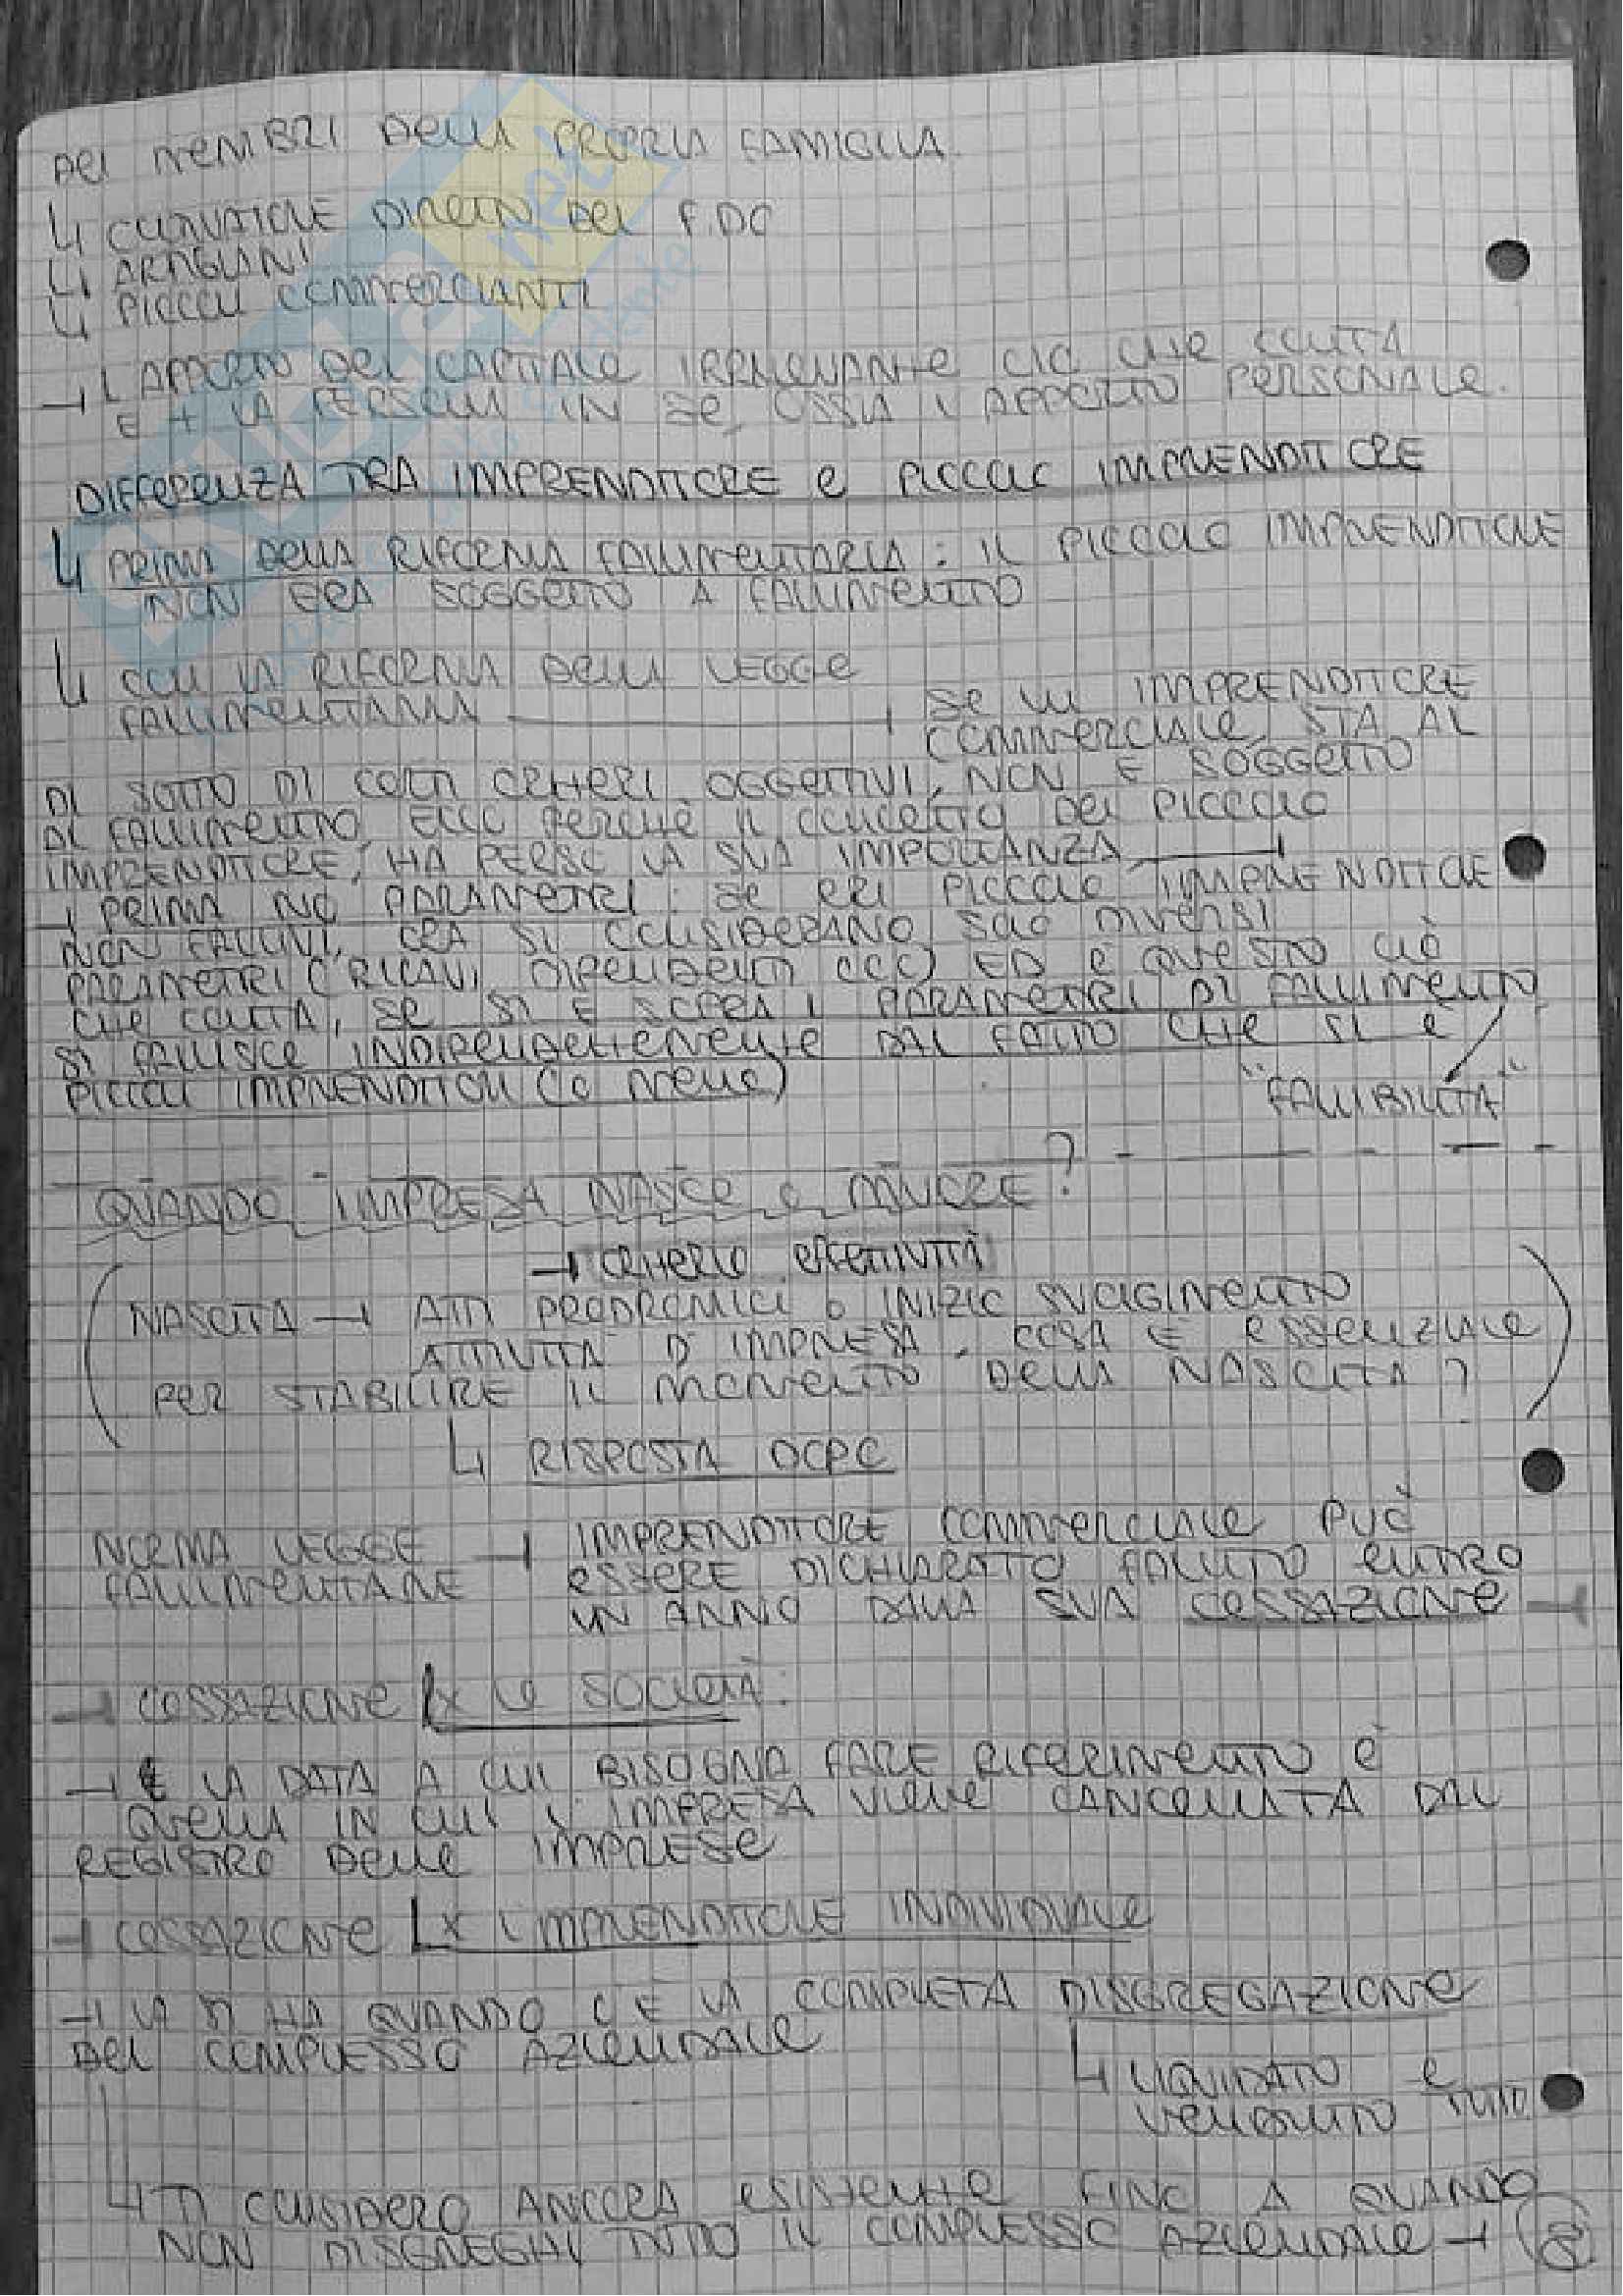 DEI MEMBRI DELLA PROPRIA FAMIGLIA.
↳ COLTIVATORE DIRETTO DEL F.DO
↳ ARTIGIANI
↳ PICCOLI COMMERCIANTI
→ L'APPORTO DEL CAPITALE IRRILEVANTE CIÒ CHE CONTA
È + LA PERSONA IN SE, OSSIA L'APPORTO PERSONALE.
DIFFERENZA TRA IMPRENDITORE E PICCOLO IMPRENDITORE
↳ PRIMA DELLA RIFORMA FALLIMENTARIA: IL PICCOLO IMPRENDITORE
NON ERA SOGGETTO A FALLIMENTO
↳ CON LA RIFORMA DELLA LEGGE
FALLIMENTARIA → SE UN IMPRENDITORE
COMMERCIALE STA AL
DI SOTTO DI CERTI CRITERI OGGETTIVI, NON È SOGGETTO
DI FALLIMENTO ECCO PERCHÈ IL CONCETTO DEL PICCOLO
IMPRENDITORE, HA PERSO LA SUA IMPORTANZA →
→ PRIMA NO PARAMETRI: SE ERI PICCOLO IMPRENDITORE
NON FALLIVI, ORA SI CONSIDERANO SOLO DIVERSI
PARAMETRI (RICAVI, DIPENDENTI ECC) ED È QUESTO CIÒ
CHE CONTA, SE SI È SOPRA I PARAMETRI DI FALLIMENTO
SI FALLISCE INDIPENDENTEMENTE DAL FATTO CHE SI È
PICCOLI IMPRENDITORI (O MENO)
"FALLIBILITÀ"
QUANDO IMPRESA NASCE E MUORE?
→ CRITERIO EFFETTIVITÀ
(NASCITA → ATTI PRODROMICI O INIZIO SVOLGIMENTO
ATTIVITÀ D'IMPRESA. COSA È ESSENZIALE
PER STABILIRE IL MOMENTO DELLA NASCITA?)
↳ RISPOSTA DOPO
NORMA LEGGE → IMPRENDITORE COMMERCIALE PUÒ
FALLIMENTARE ESSERE DICHIARATO FALLITO ENTRO
UN ANNO DALLA SUA CESSAZIONE
→ CESSAZIONE X LE SOCIETÀ:
→ LA DATA A CUI BISOGNA FARE RIFERIMENTO È
QUELLA IN CUI L'IMPRESA VIENE CANCELLATA DAL
REGISTRO DELLE IMPRESE
→ CESSAZIONE X L'IMPRENDITORE INDIVIDUALE
→ LA SI HA QUANDO C'È LA COMPLETA DISGREGAZIONE
DEL COMPLESSO AZIENDALE
↳ LIQUIDATO E
VENDUTO TUTTO
↳ TI CONSIDERO ANCORA ESISTENTE FINO A QUANDO
NON DISGREGHI TUTTO IL COMPLESSO AZIENDALE →